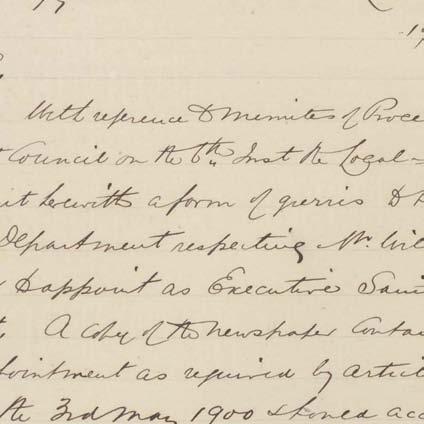 With reference to Minutes of Proce
Council on the 6th Inst the Local
herewith a form of queries to
Department respecting Mr. Wil
to appoint as Executive Sani
A copy of the newspaper conta
pointment as required by Articl
the 3rd May 1900 should acc